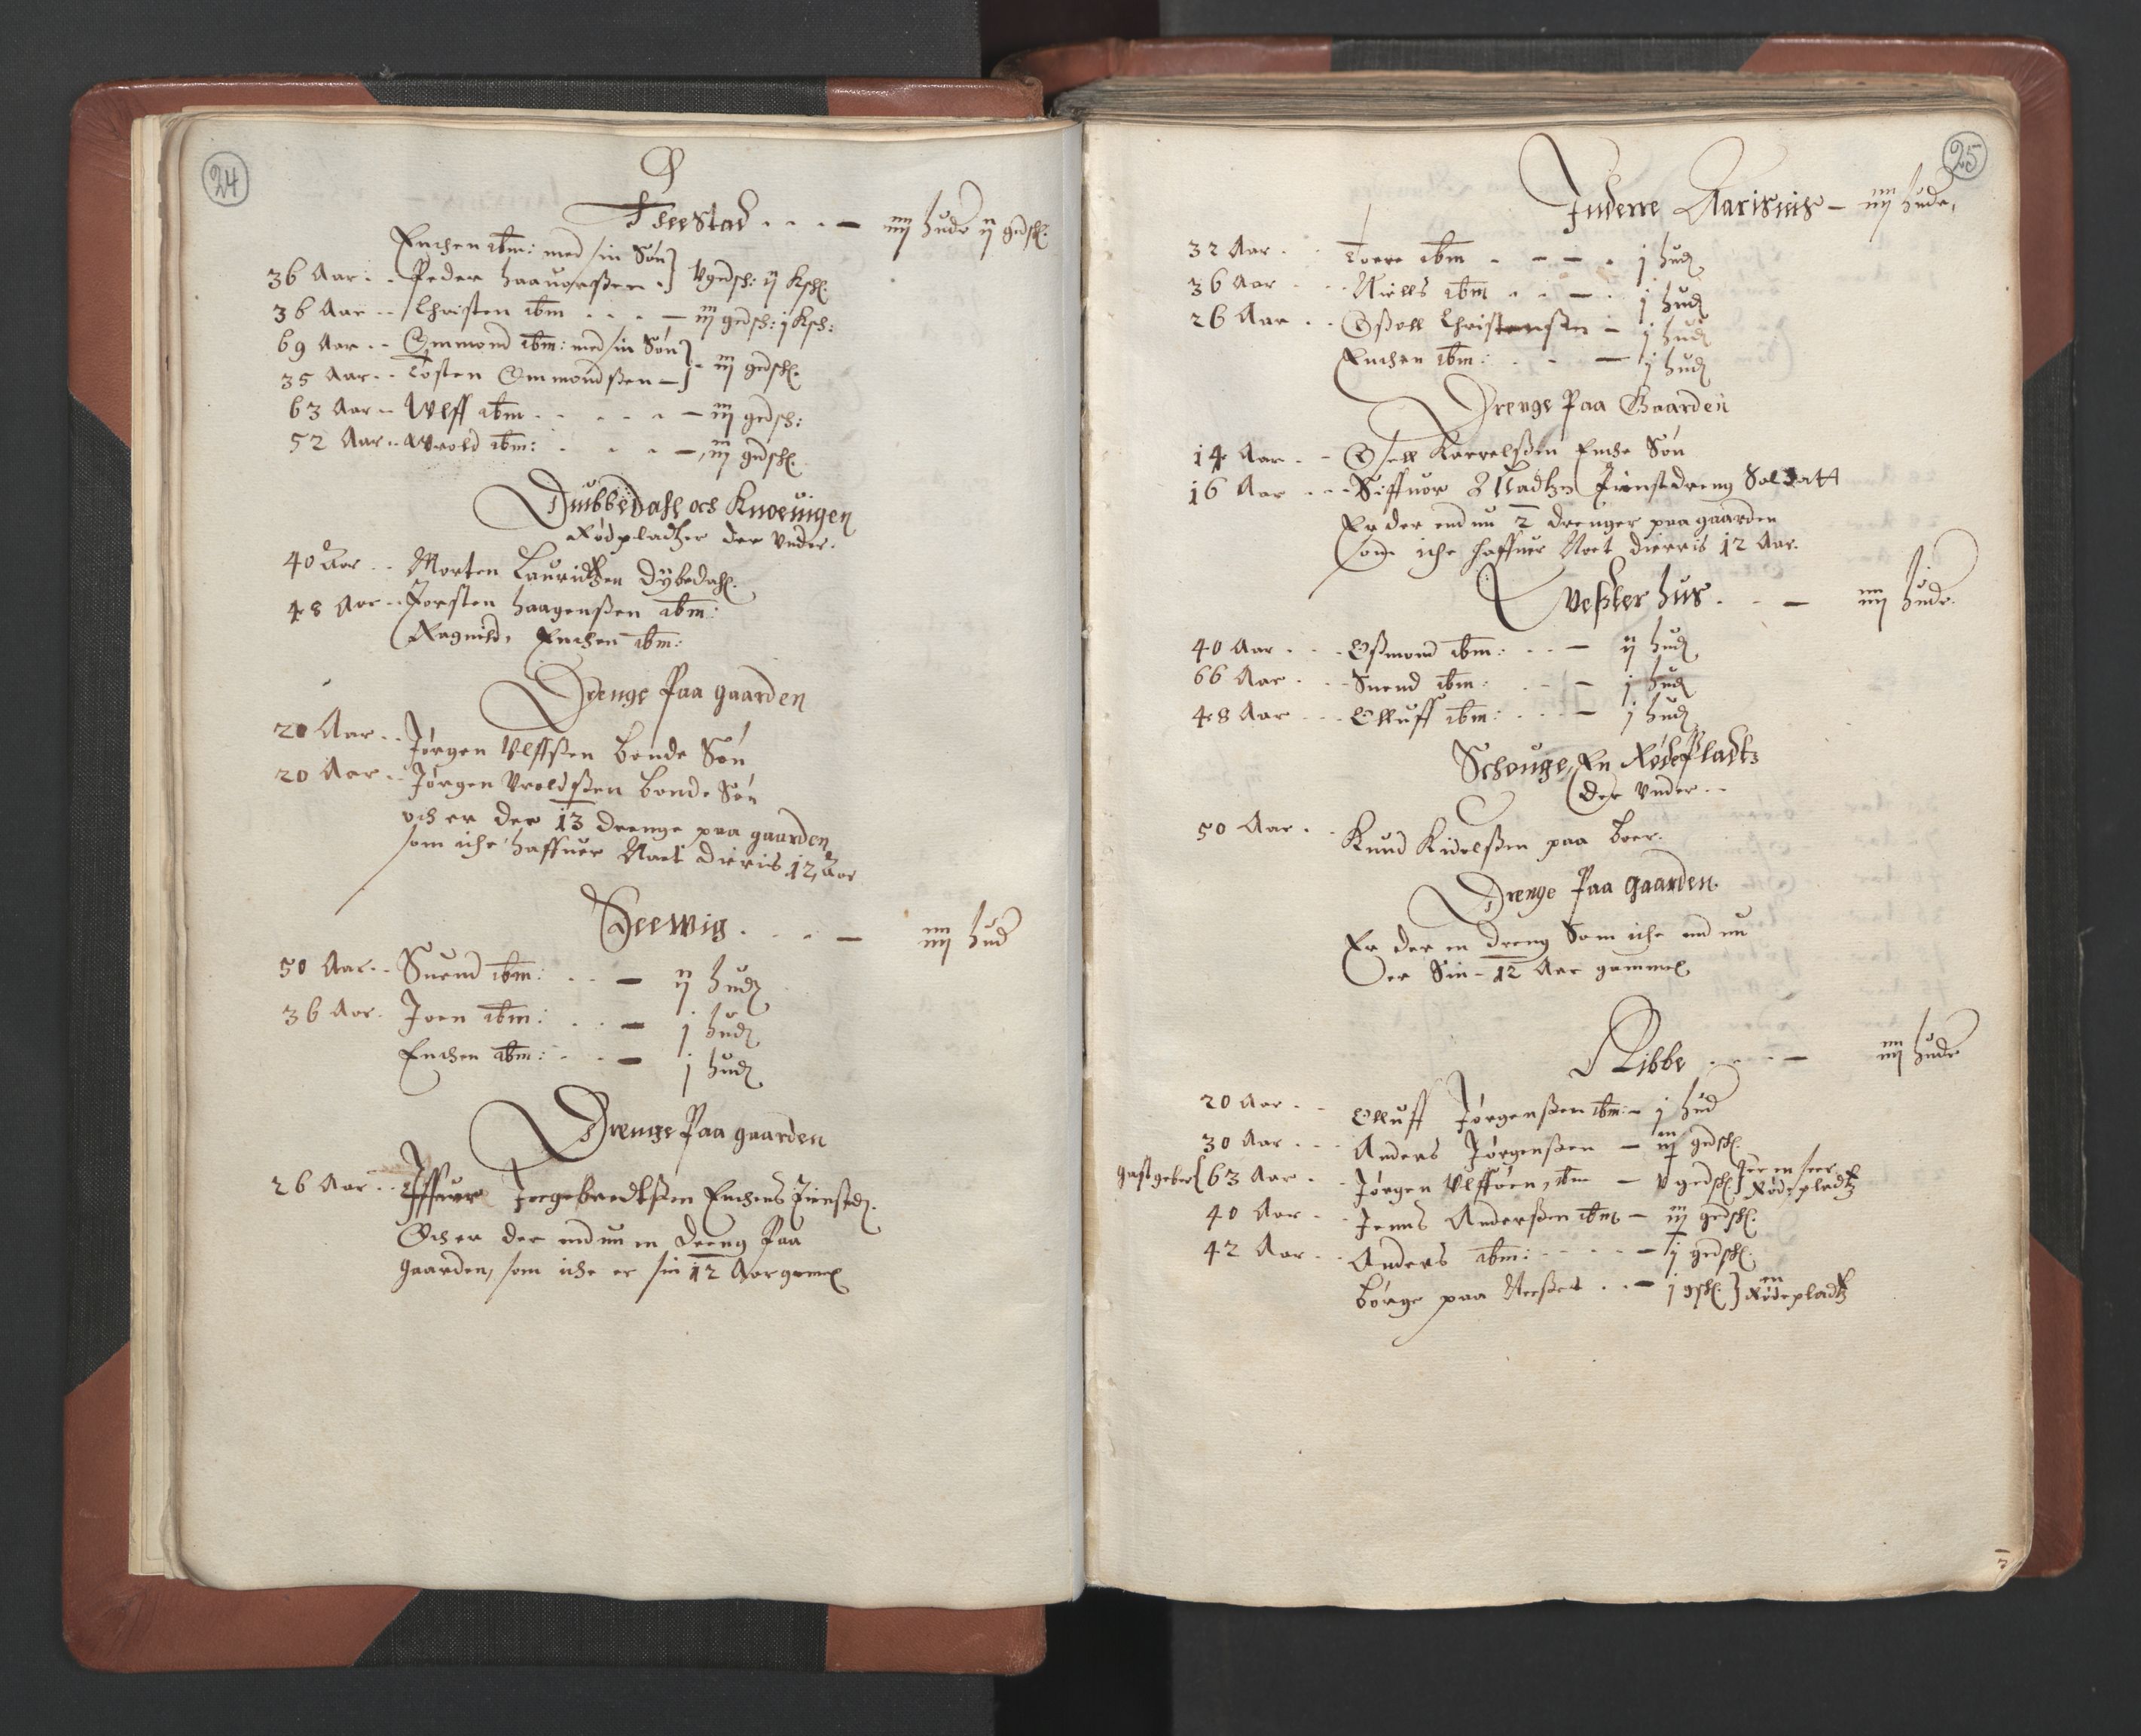 24
Theestad . . . – iiij hude ij gedsk.
Enchen ibm: med sin Søn
36 Aar . . Peder haauorsßen . } v gedsk: ij Ksk.
36 Aar . . Christen ibm . . . – iij gedsk: j Ksk:
69 Aar . . Ommond ibm: med sin Søn
35 Aar . . Tosten Ommondsßen – } . iij gedsk.
63 Aar . . Wlff ibm . . . . – iij gedsk:
52 Aar . . Wrold ibm: . . . –, iij gedsk.
Duibbedahl och Knoevigen
Rødpladtzer der Vnder.
40 Aar . . Morten Lauridtzen Dybedahl.
48 Aar . . Torsten haagenßen ibm:
Ragnild, Enchen ibm:
Drenge Paa gaarden
20 Aar . . Jørgen Vlffsßen bonde Søn
20 Aar . . Jørgen Vroldsßen bonde Søn
och er der 13 drenge paa gaarden
som iche haffuer Naet dieris 12, Aar
Seewig . . . – iiij hud
50 Aar . . Suend ibm: . . – ij hud
36 Aar . Joen ibm: . . – j hud
Enchen ibm: . . – j hud
Drenge Paa gaarden
26 Aar . . Iffuer Ingebredtsßen Enchens Tienstd.
Och er der endnu en dreng Paa
gaarden, som iche er sin 12 Aar gamel
25
Inderre Aarisnis – iiij hude,
32 Aar . . Toere ibm . – – . j hud
36 Aar . . Niells ibm . . – . j hud
26 Aar . . Oßoll Christensßen – j hud
Enchen ibm: . . – j hud
Drenge Paa Gaarden
14 Aar . . Osell Korrelsßen Enche Søn
16 Aar . . . Siffuor Tienstedreng Soldatt
Er der end nu 2 drenger paa gaarden
som iche haffuer Noet dierris 12 Aar.
Vester hus . . – iiij hude.
40 Aar . . . Oßmond ibm: . . – ij hud
66 Aar . . . Suend ibm: . . – j hud
48 Aar . . . Olluff ibm: . . . – j hud
Schouge, En RødePladtz
der Vnder . .
50 Aar . . Knud Kidelsßen paa boer.
Drenge Paa gaarden.
Er der en dreng Som iche end nu
er Sin – 12 Aar gammel
Ribbe . . . – iiij hude
20 Aar . . Olluff Jørgenßen ibm: – j hud
30 Aar . . . Anders Jørgenßen – iij gedsk.
gastgeber { 63 Aar . . Jørgen Vlffsøen, ibm – v gedsk. } Rødepladtz
40 Aar . . Jenns Anderßen ibm – iij gedsk.
42 Aar . . Anders ibm: . . . . – ij gedsk.
børge paa Neeßet . . – j gsk. } en Rødepladtz